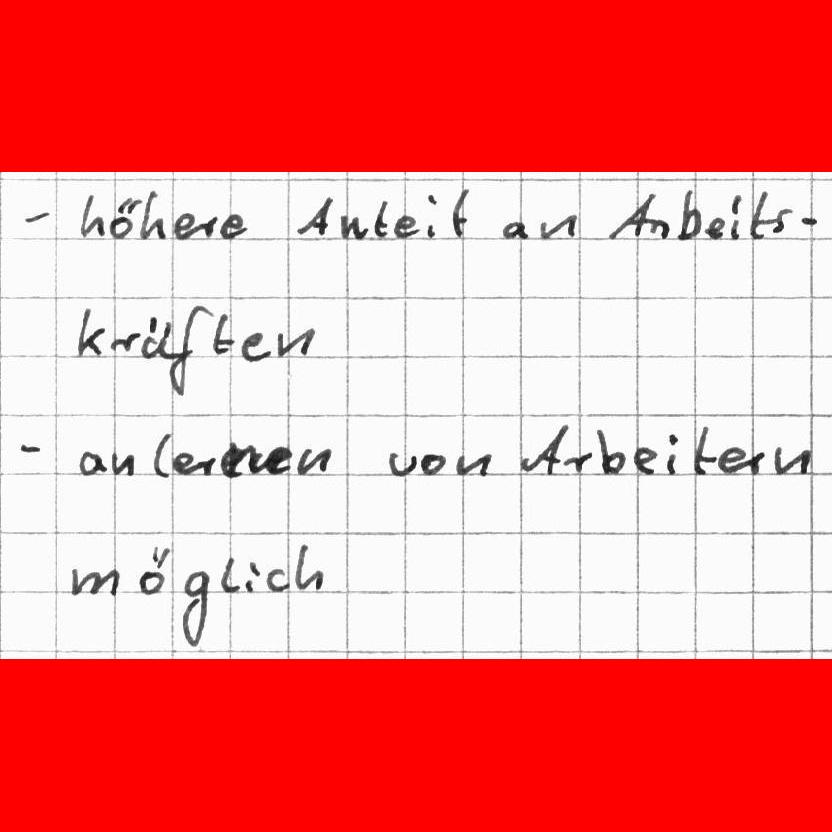 - höhere Anteil an Arbeits-
kräften
- anlernen von Arbeitern
möglich